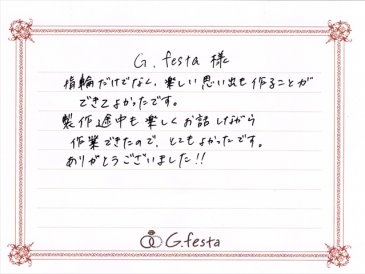 G.festa 様
指輪だけでなく、楽しい思い出も作ることが
できてよかったです。
製作途中も楽しくお話しながら
作業できたので、とてもよかったです。
ありがとうございました!!
G.festa